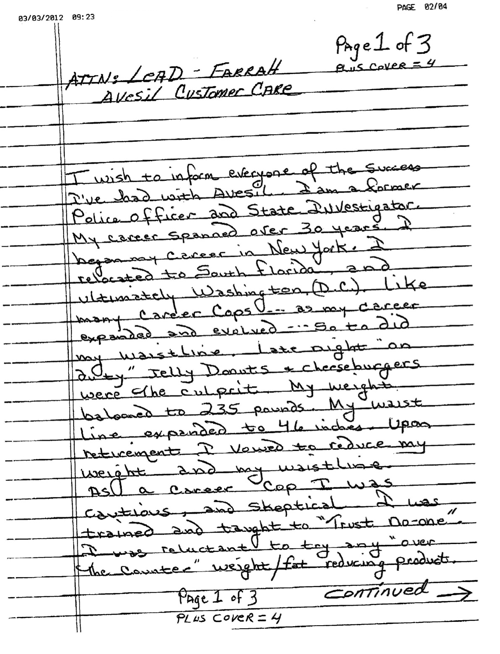 03/03/2012 09:23 PAGE 02/04
Page 1 of 3
PLUS COVER = 4
ATTN: LEAD - FARRAH
AVESIL CUSTOMER CARE
I wish to inform everyone of the success
I've had with Avesil. I am a former
Police officer and State Investigator.
My career spanned over 30 years. I
began my career in New York. I
relocated to South Florida, and
ultimately Washington, (D.C.). Like
many Career Cops --- as my career
expanded and evolved --- So to did
my waistline. Late night "on
duty" Jelly Donuts & cheeseburgers
were the culprit. My weight
balooned to 235 pounds. My waist
line expanded to 46 inches. Upon
retirement I vowed to reduce my
weight and my waistline.
As a career Cop I was
cautious, and skeptical. I was
trained and taught to "Trust no-one".
I was reluctant to try any "over
the counter" weight/fat reducing product.
Page 1 of 3 Continued →
PLUS COVER = 4